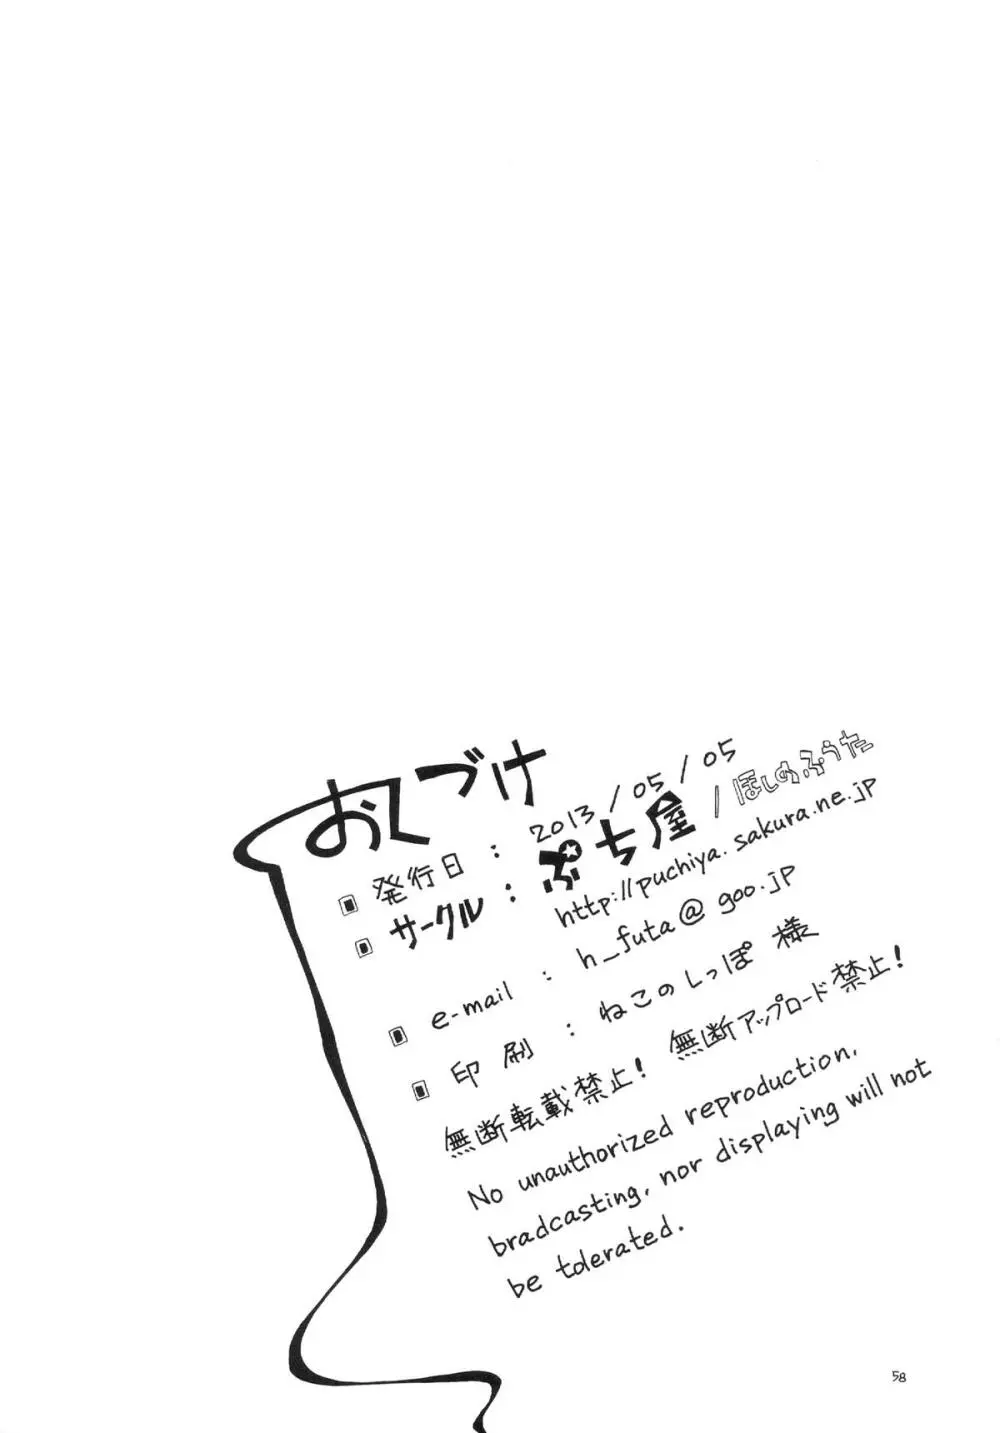 おくづけ
発行日 : 2013/05/05
サークル : ぷち屋 / ほしのふうた
http://puchiya.sakura.ne.jp
e-mail : h_futa@goo.jp
印刷 : ねこのしっぽ 様
無断転載禁止! 無断アップロード禁止!
No unauthorized reproduction,
bradcasting, nor displaying will not
be tolerated.
58